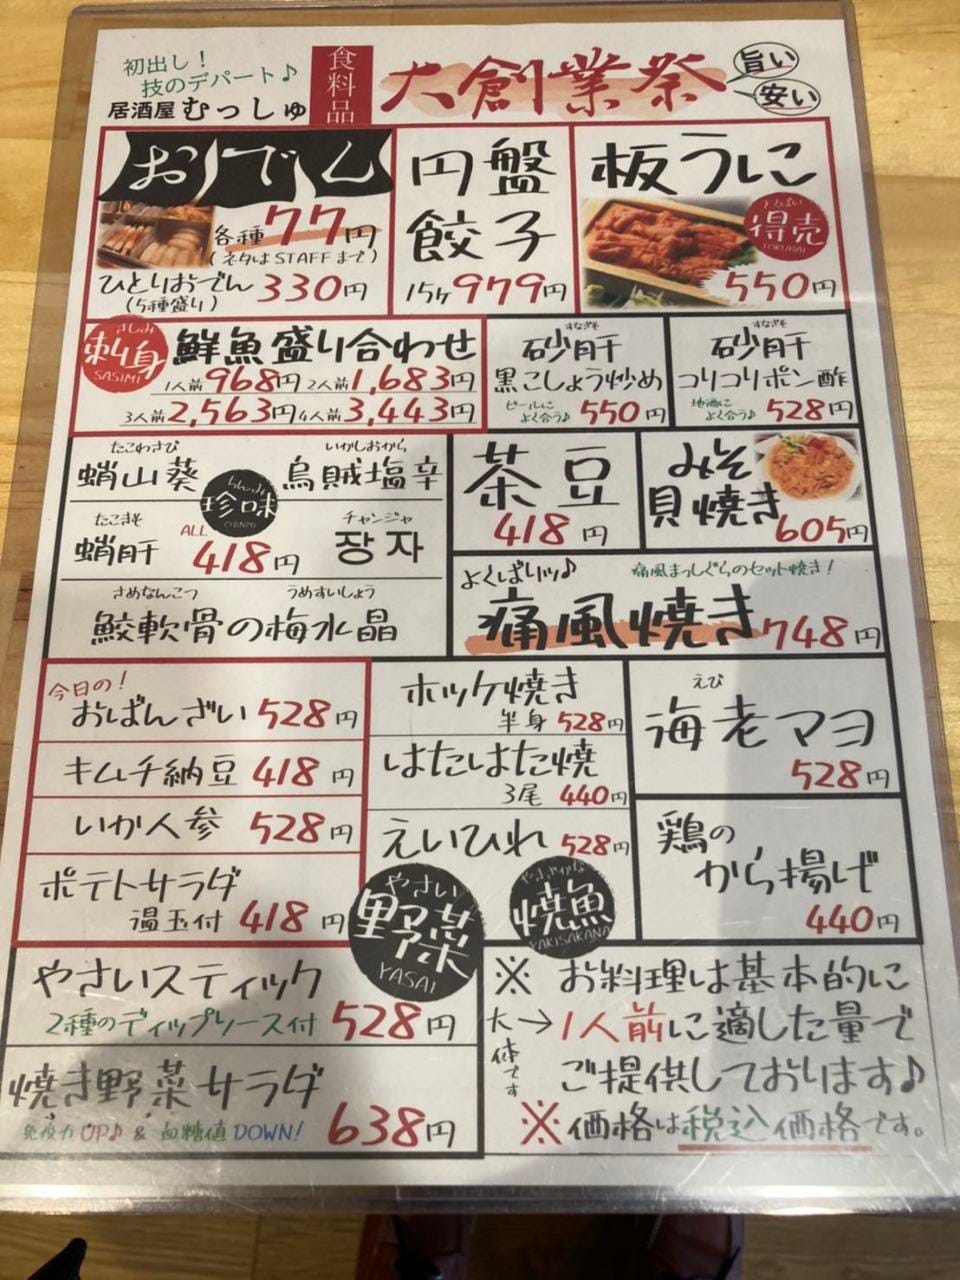 初出し!
技のデパート♪
居酒屋 むっしゅ
食料品
大創業祭
旨い
安い
おでん
各種 77円
(ネタはSTAFFまで)
ひとりおでん 330円
(5種盛り)
円盤
餃子
15ヶ 979円
板うに
とくばい
得売
TOKUBAI
550円
さしみ
刺身
SASIMI
鮮魚盛り合わせ
1人前 968円 2人前 1,683円
3人前 2,563円 4人前 3,443円
すなぎも
砂肝
黒こしょう炒め
ビールに
よく合う♪ 550円
すなぎも
砂肝
コリコリポン酢
地酒に
よく合う♪ 528円
たこわさび
蛸山葵
いかしおから
烏賊塩辛
ちんみ
珍味
CHINMI
たこきも
蛸肝
ALL 418円
チャンジャ
장자
さめなんこつ うめすいしょう
鮫軟骨の梅水晶
茶豆
418円
みそ
貝焼き
605円
よくばりッ♪
痛風まっしぐらのセット焼き!
痛風焼き 748円
今日の!
おばんざい 528円
キムチ納豆 418円
いか人参 528円
ポテトサラダ
温玉付 418円
ホッケ焼き
半身 528円
はたはた焼
3尾 440円
えいひれ 528円
やきざかな
焼魚
YAKISAKANA
えび
海老マヨ
528円
鶏の
から揚げ
440円
やさい
野菜
YASAI
やさいスティック
2種のディップソース付 528円
焼き野菜サラダ
免疫力UP♪ & 血糖値DOWN! 638円
※ お料理は基本的に
大体です→1人前に適した量で
ご提供しております♪
※価格は税込価格です。